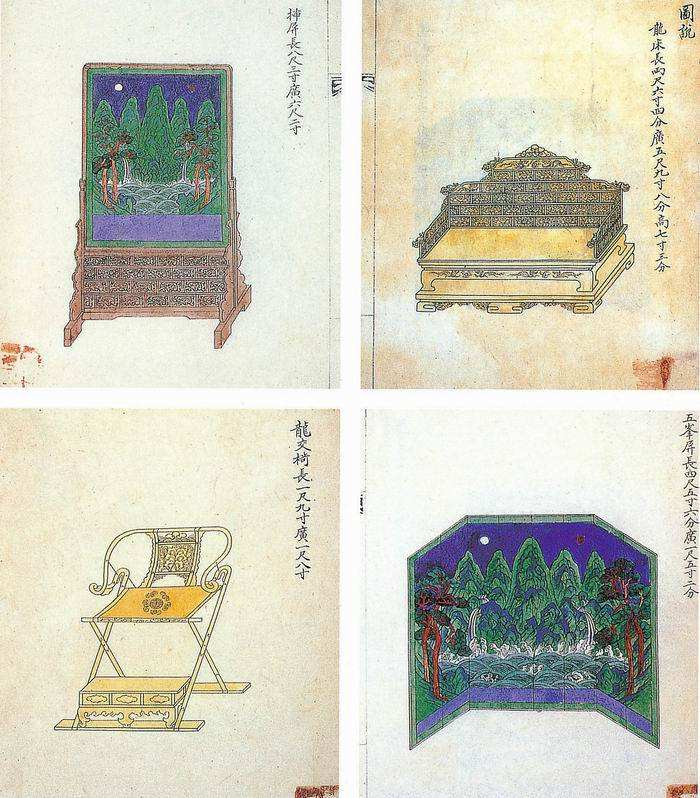 揷屛長八尺三寸廣六尺二寸
圖說
龍床長両尺六寸四分廣五尺九寸八分高七寸三分
龍交椅長一尺九寸廣一尺八寸
五峯屛長四尺五寸六分廣一尺五寸二分